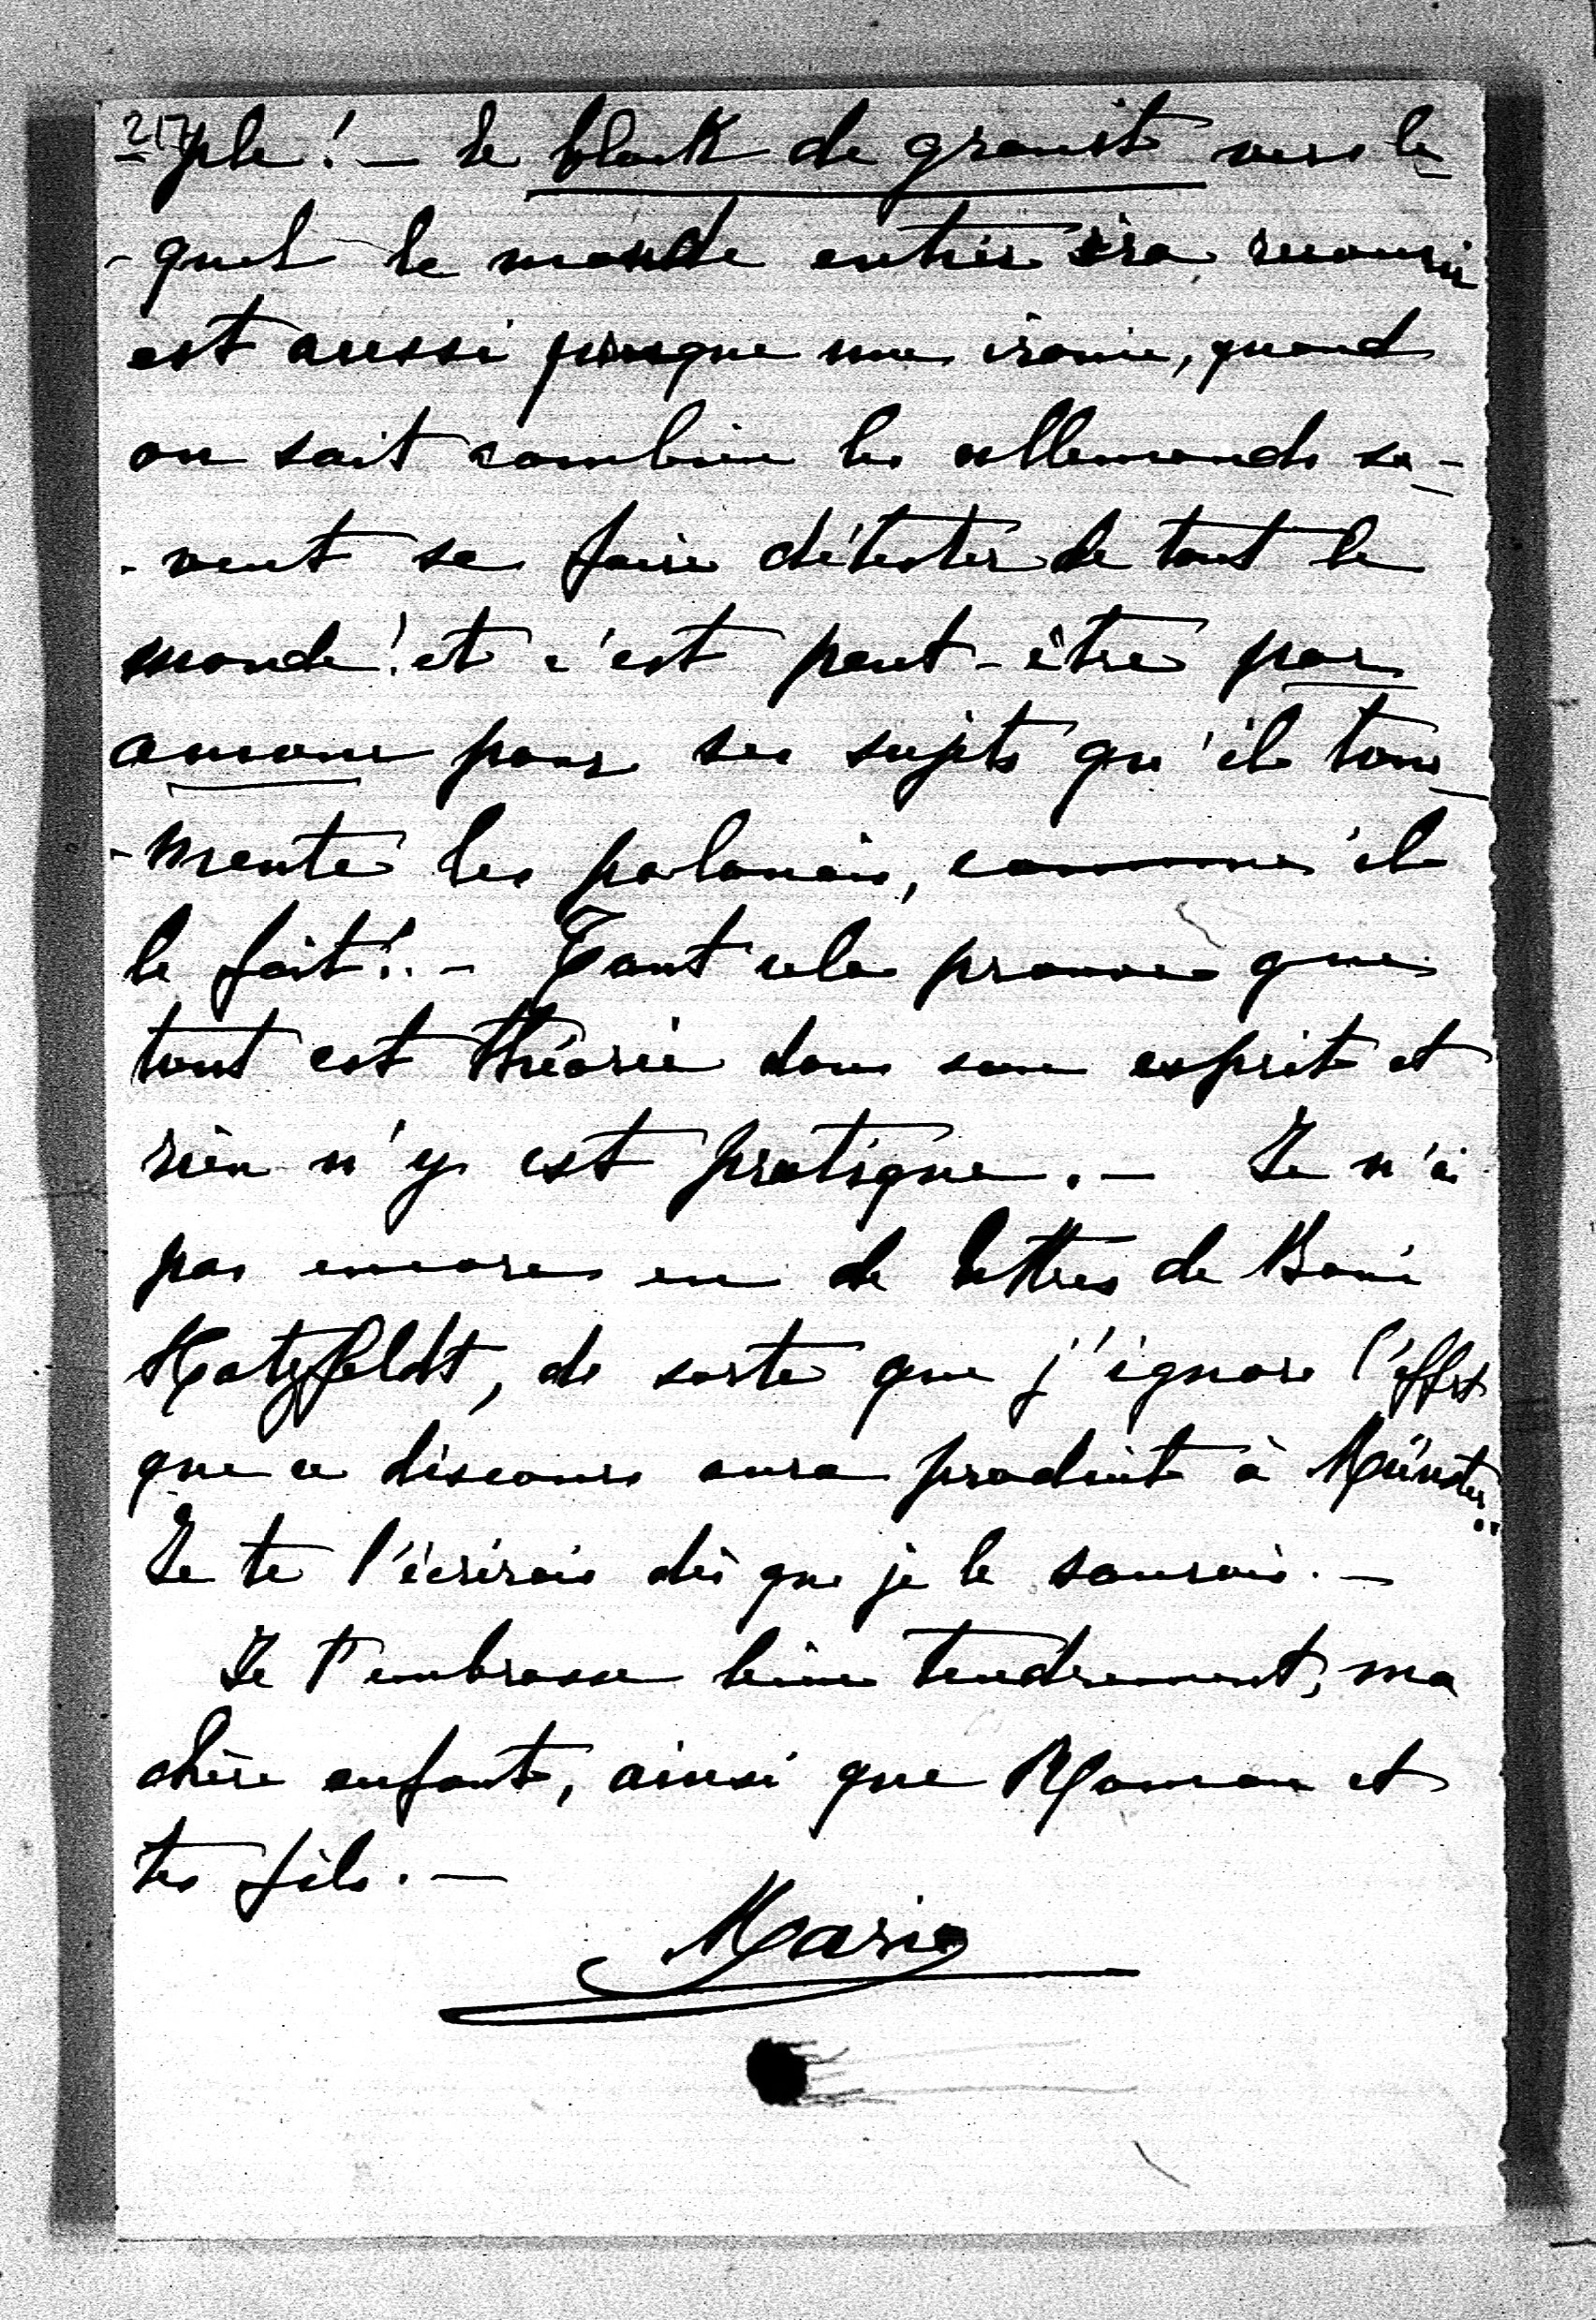 217
-ple! — le block de granit vers le-
-quel le monde entier ira recourir
est aussi presque une ironie, quand
on sait combien les allemands sa-
-vent se faire détester de tout le
monde! et c'est peut-être par
amour pour ses sujets qu'il tour-
-mente les polonais, comme il
le fait!.. — Tout cela prouve que
tout est théorie dans son esprit et
rien n'y est pratique. — Je n'ai
pas encore eu de lettres de
Hatzfeldt, de sorte que j'ignore l'effet
que ce discours aura produit à Münster..
Je te l'écrirais dès que je le saurais. —
Je t'embrasse bien tendrement, ma
chère enfant, ainsi que Maman et
tes fils. —
Marie